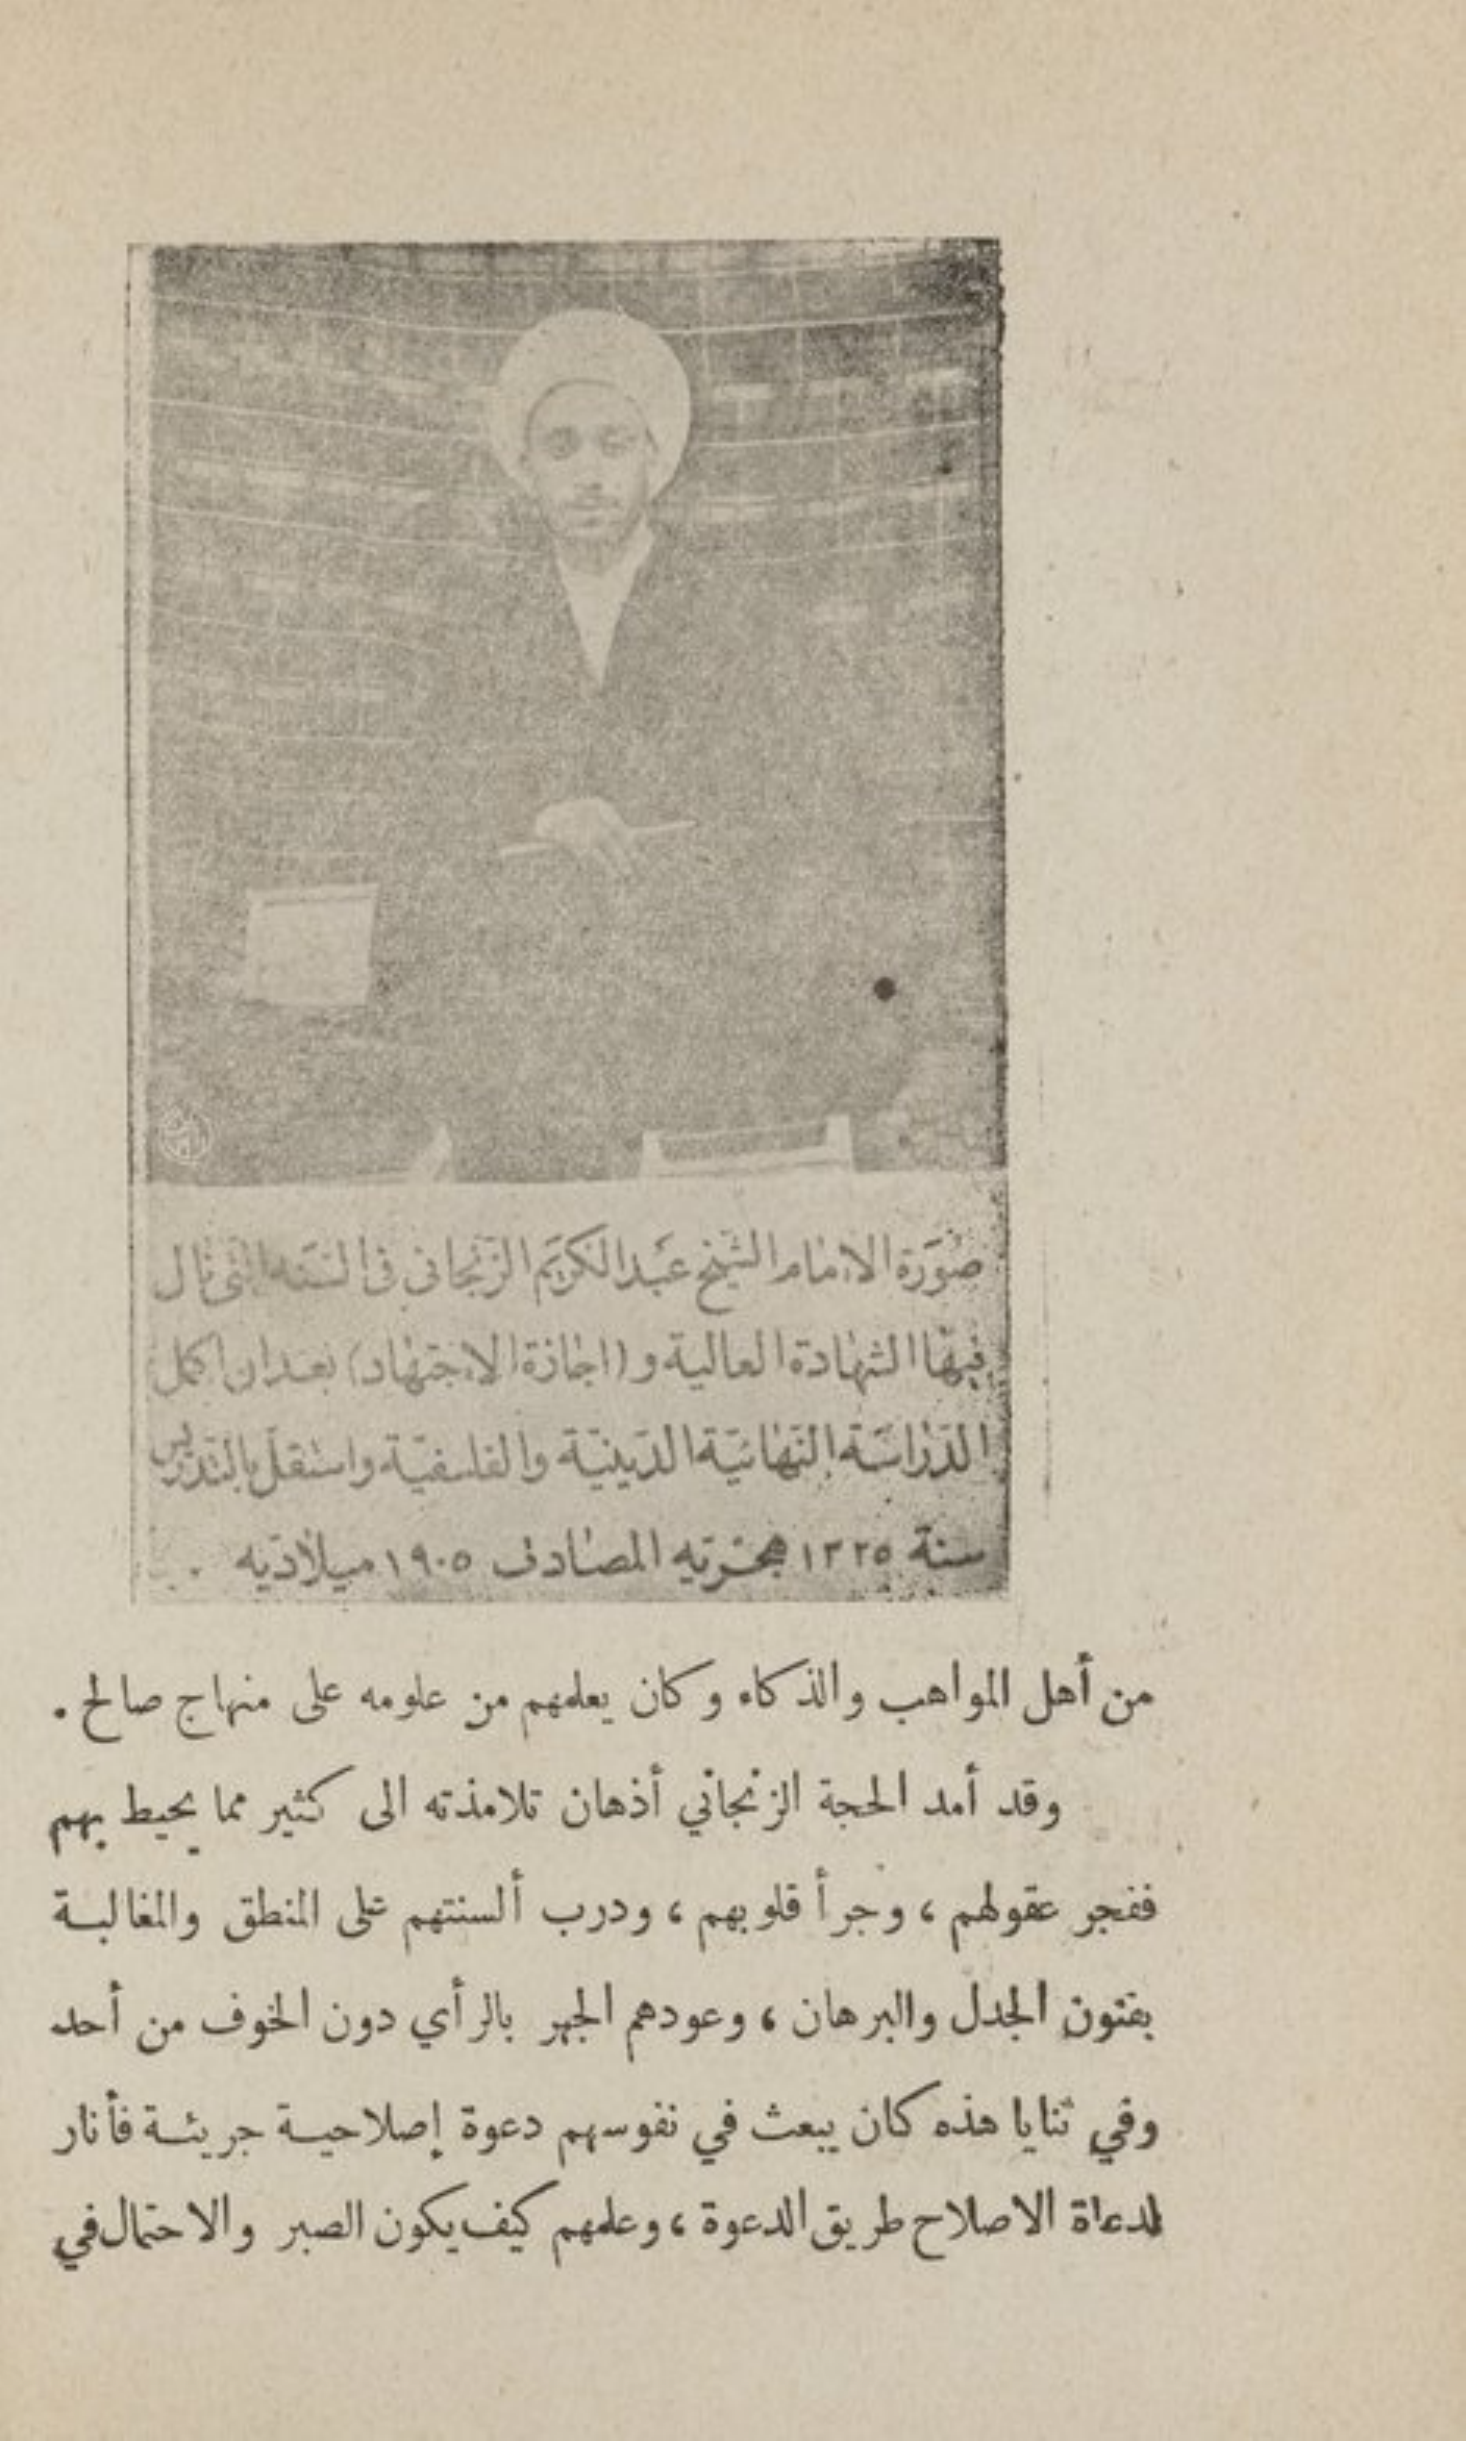 صورة الامام الشيخ عبد الكريم الزنجاني في السنه التي نال
فيها الشهادة العالية و (اجازة الاجتهاد) بعد ان اكمل
الدراسة النهائية الدينية والفلسفية واستقل بالتدريس
سنة ١٣٢٥ هجريه المصادف ١٩٠٥ ميلاديه .
من أهل المواهب والذكاء وكان يعلمهم من علومه على منهاج صالح .
وقد أمد الحجة الزنجاني أذهان تلامذته الى كثير مما يحيط بهم
ففجر عقولهم ، وجرأ قلوبهم ، ودرب ألسنتهم على المنطق والمغالبة
بفنون الجدل والبرهان ، وعودهم الجهر بالرأي دون الخوف من أحد
وفي ثنايا هذه كان يبعث في نفوسهم دعوة إصلاحية جريئة فأنار
لدعاة الاصلاح طريق الدعوة ، وعلمهم كيف يكون الصبر والاحتمال في